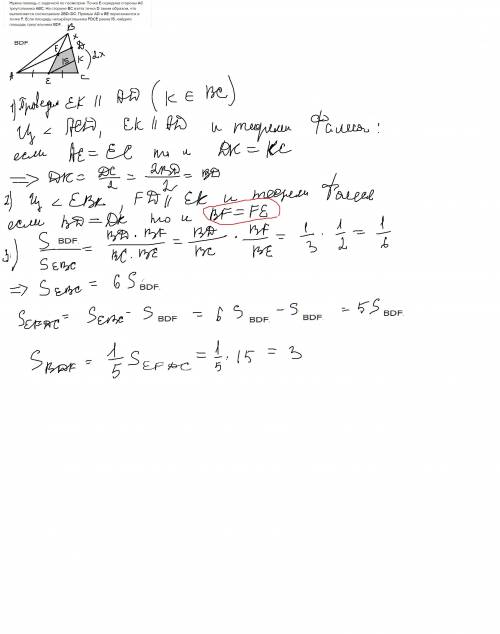 Нужна помощь с задачкой по геометрии: Точка E середина стороны AC
треугольника ABC. На стороне BC взята точка D таким образом, что
выполняется соотношение 2BD=DC. Прямые AD и BE пересекаются в
точке F. Если площадь четырёхугольника FDCE равна 15, найдите
площадь треугольника BDF.
BDF
B
x
D
F
15
K
2x
A
E
C
1) Проведём EK || AD (K ∈ BC)
Из < ACD, EK || AD и теоремы Фалеса:
если AE = EC то и DK = KC
=> DK = DC/2 = 2BD/2 = BD
2) Из < EBK, FD || EK и теоремы Фалеса
если BD = DK то и BF = FE
3) S BDF / S EBC = BD · BF / BC · BE = BD/BC · BF/BE = 1/3 · 1/2 = 1/6
=> S EBC = 6 S BDF
S EFDC = S EBC - S BDF = 6 S BDF - S BDF = 5 S BDF
S BDF = 1/5 S EFDC = 1/5 · 15 = 3